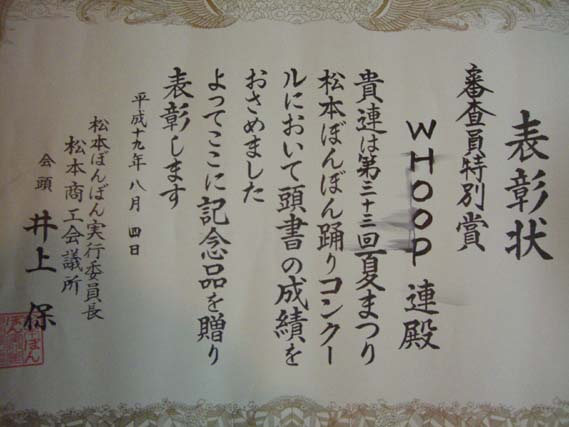 表彰状
審査員特別賞
WHOOP 連殿
貴連は第三十三回夏まつり
松本ぼんぼん踊りコンクー
ルにおいて頭書の成績を
おさめました
よってここに記念品を贈り
表彰します
平成十九年八月四日
松本ぼんぼん実行委員長
松本商工会議所
会頭 井上保